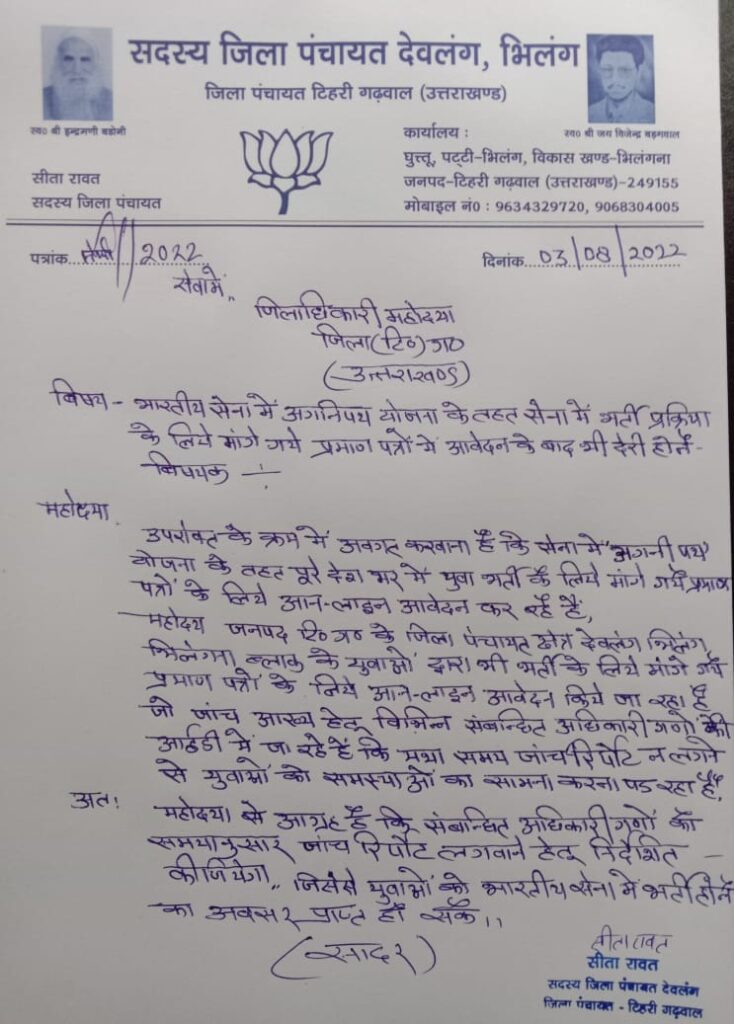 सदस्य जिला पंचायत देवलंग, भिलंग
जिला पंचायत टिहरी गढ़वाल (उत्तराखण्ड)
स्व० श्री इन्द्रमणी बडोनी
स्व० श्री जय विजेन्द्र बड़गवाल
सीता रावत
सदस्य जिला पंचायत
कार्यालय :
घुत्तू, पट्टी-भिलंग, विकास खण्ड-भिलंगना
जनपद-टिहरी गढ़वाल (उत्तराखण्ड)-249155
मोबाइल नं० : 9634329720, 9068304005
पत्रांक 2022
दिनांक 03/08/2022
सेवामें,,
जिलाधिकारी महोदया
जिला (टि०) ग०
(उत्तराखण्ड)
विषय - भारतीय सेना में अगनिपथ योजना के तहत सेना में भर्ती प्रक्रिया
के लिये मांगे गये प्रमाण पत्रों में आवेदन के बाद भी देरी होने -
विषयक -:-
महोदया,
उपरोक्त के क्रम में अवगत करवाना है कि सेना में "अगनी पथ"
योजना के तहत पूरे देश भर में युवा भर्ती के लिये मांगे गये प्रमाण
पत्रों के लिये आन-लाइन आवेदन कर रहें हैं,
महोदय जनपद टि० ग० के जिला पंचायत क्षेत्र देवलंग भिलंग,
भिलंगना ब्लाक के युवाओं द्वारा भी भर्ती के लिये मांगे गये
प्रमाण पत्रों के लिये आन-लाइन आवेदन किये जा रहा है
जो जांच आख्य हेतू विभिन्न संबन्धित अधिकारी गणों की
आईडी में जा रहे हैं कि मथा समय जांच रिर्पोट न लगने
से युवाओं को समस्याओं का सामना करना पड रहा है,
अतः महोदया से आग्रह है कि संबन्धित अधिकारी गणों को
समयानुसार जांच रिर्पोट लगवाने हेतू निर्देशित -
कीजियेगा,, जिससे युवाओं को भारतीय सेना में भर्ती होने
का अवसर प्राप्त हो सकें,,
(सादर)
सीता रावत
सीता रावत
सदस्य जिला पंचायत देवलंग
जिला पंचायत - टिहरी गढ़वाल